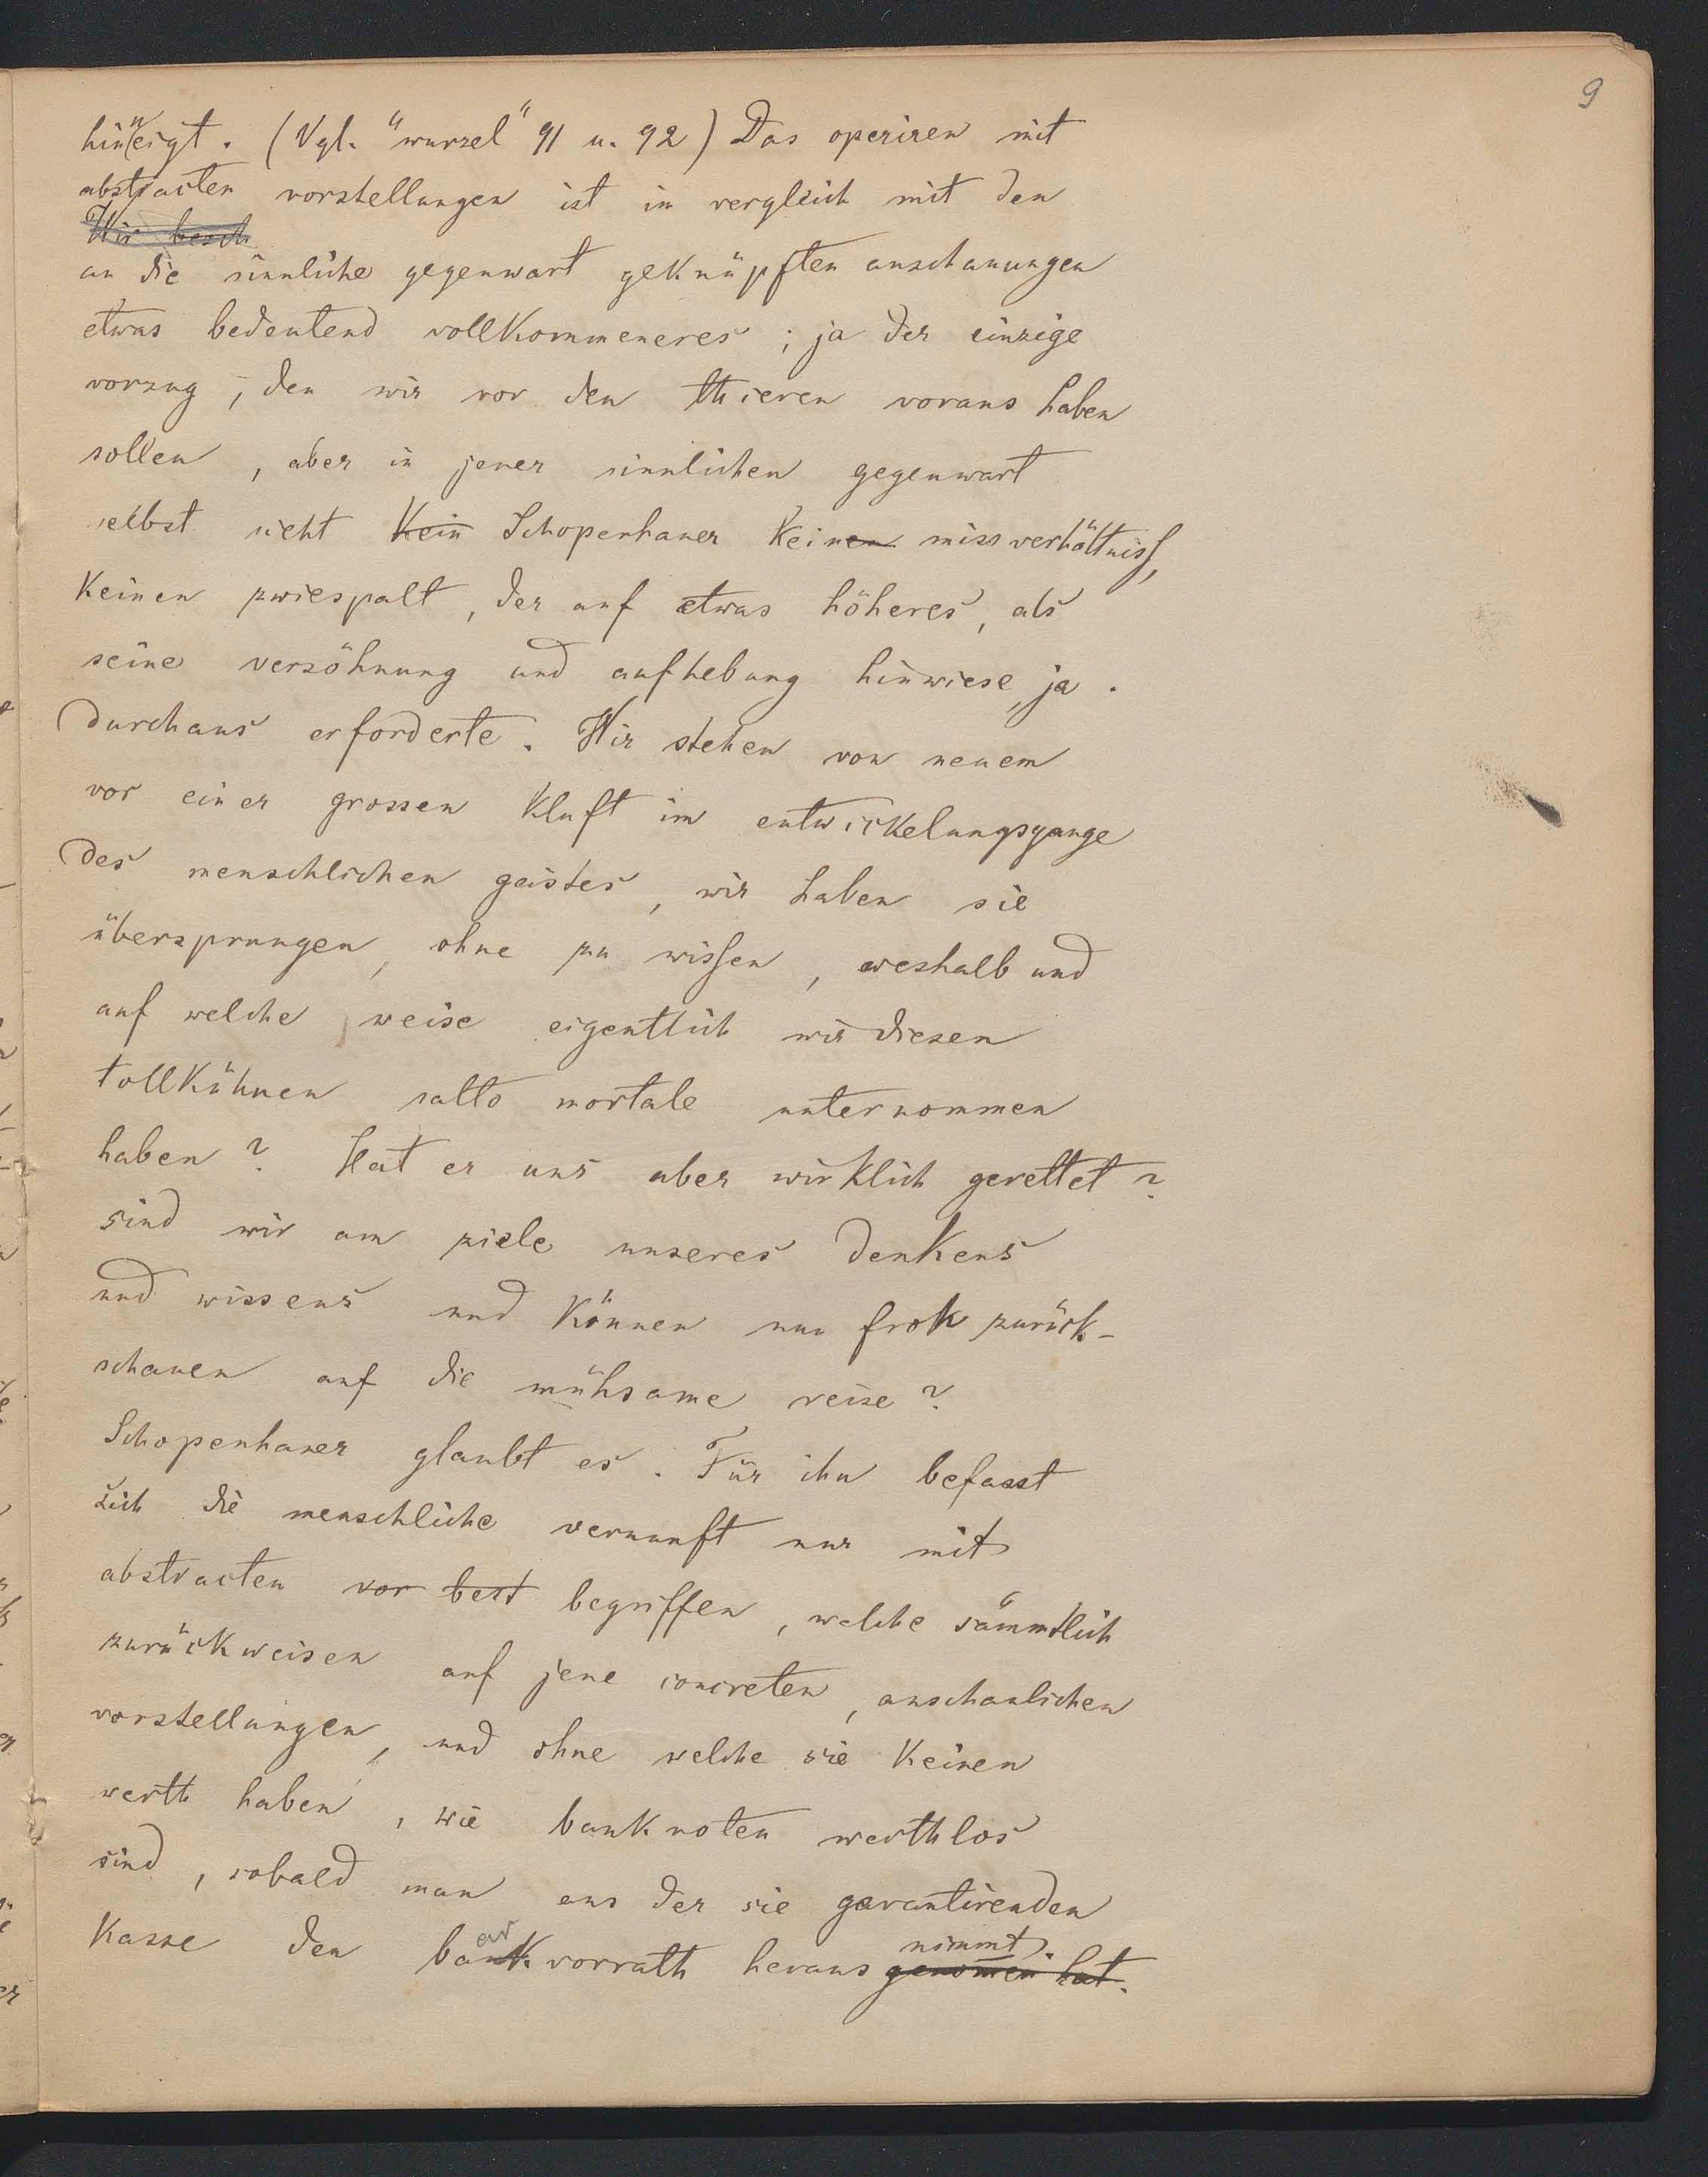 9
hinneigt. (Vgl. "wurzel" 91 u. 92) Das operiren mit
abstracten vorstellungen ist in vergleich mit den
Wir besch
an die sinnliche gegenwart geknüpften anschauungen
etwas bedeutend vollkommeneres; ja der einzige
vorzug, den wir vor den thieren voraus haben
sollen, aber in jener sinnlichen gegenwart
selbst sieht kein Schopenhauer keinen missverhältniss,
keinen zwiespalt, der auf etwas höheres, als
seine versöhnung und aufhebung hinwiese, ja
durchaus erforderte. Wir stehen von neuem
vor einer grossen kluft im entwickelungsgange
des menschlichen geistes, wir haben sie
übersprungen, ohne zu wissen, weshalb und
auf welche weise eigentlich wir diesen
tollkühnen salto mortale unternommen
haben? Hat er uns aber wirklich gerettet?
sind wir am ziele unseres denkens
und wissens und können nun froh zurück-
schauen auf die mühsame reise?
Schopenhauer glaubt es. Für ihn befasst
sich die menschliche vernunft nur mit
abstracten vor best begriffen, welche sämmtlich
zurückweisen auf jene concreten, anschaulichen
vorstellungen, und ohne welche sie keinen
werth haben, wie banknoten werthlos
sind, sobald man aus der sie garantirenden
nimmt.
kasse den barvorrath heraus genommen hat.